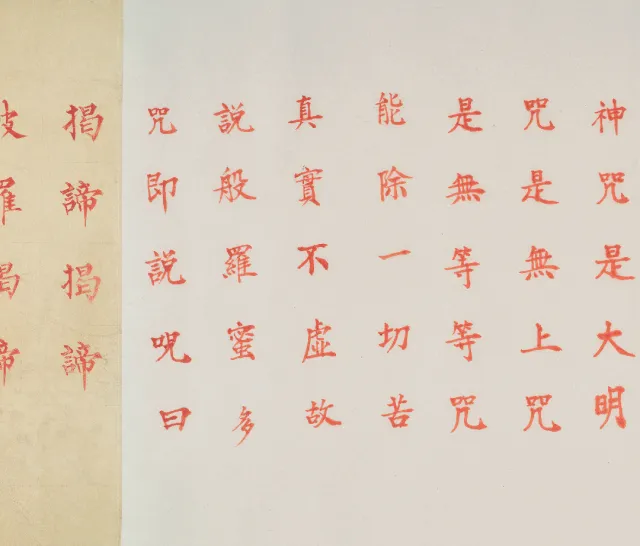 神咒是大明
咒是無上咒
是無等等咒
能除一切苦
真實不虛故
說般羅蜜多
咒即說呪曰
揭諦揭諦
波羅揭諦